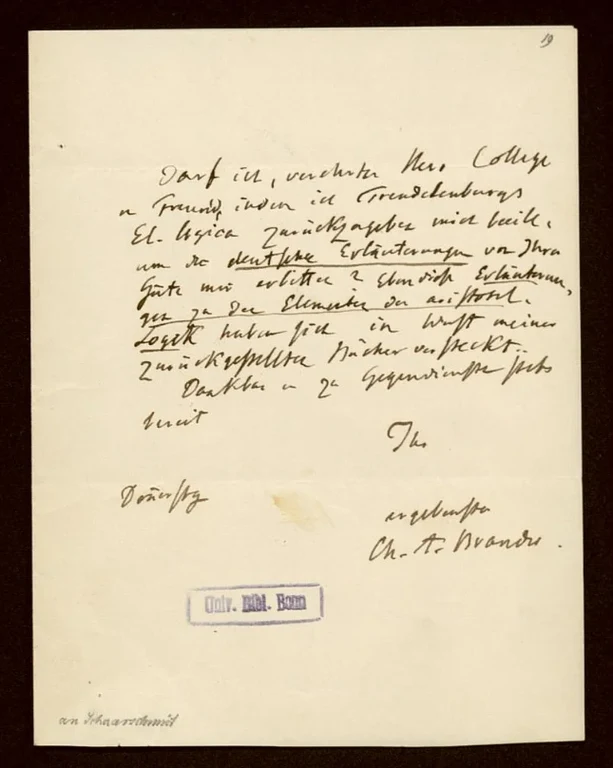 19
Darf ich, verehrter Herr College
u Freund, indem ich Trendelenburgs
El. logica zurückzugeben mich beeile,
um die deutschen Erläuterungen von Ihrer
Güte mir erbitten? Eben diese Erläuterun-
gen zu den Elementen der aristotel.
Logik haben sich im Wust meiner
zurückgestellten Bücher versteckt.
Dankbar u zu Gegendiensten stets
bereit
Ihr
Donnerstag
ergebenster
Ch. A. Brandis.
Univ. Bibl. Bonn
an Schaarschmidt